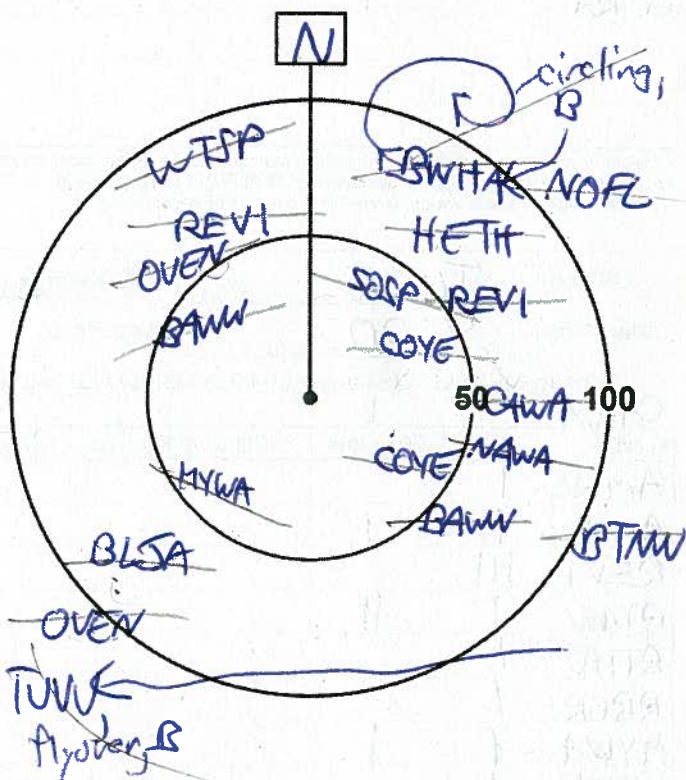 N
circling,
B
WTSP
BWHA NOFL
REVI
HETH
OVEN
SOSP REVI
BAWW
COYE
50 CAWA 100
COYE NAWA
MYWA
BAWW
BTNW
BLJA
OVEN
TUVU
flyover, B